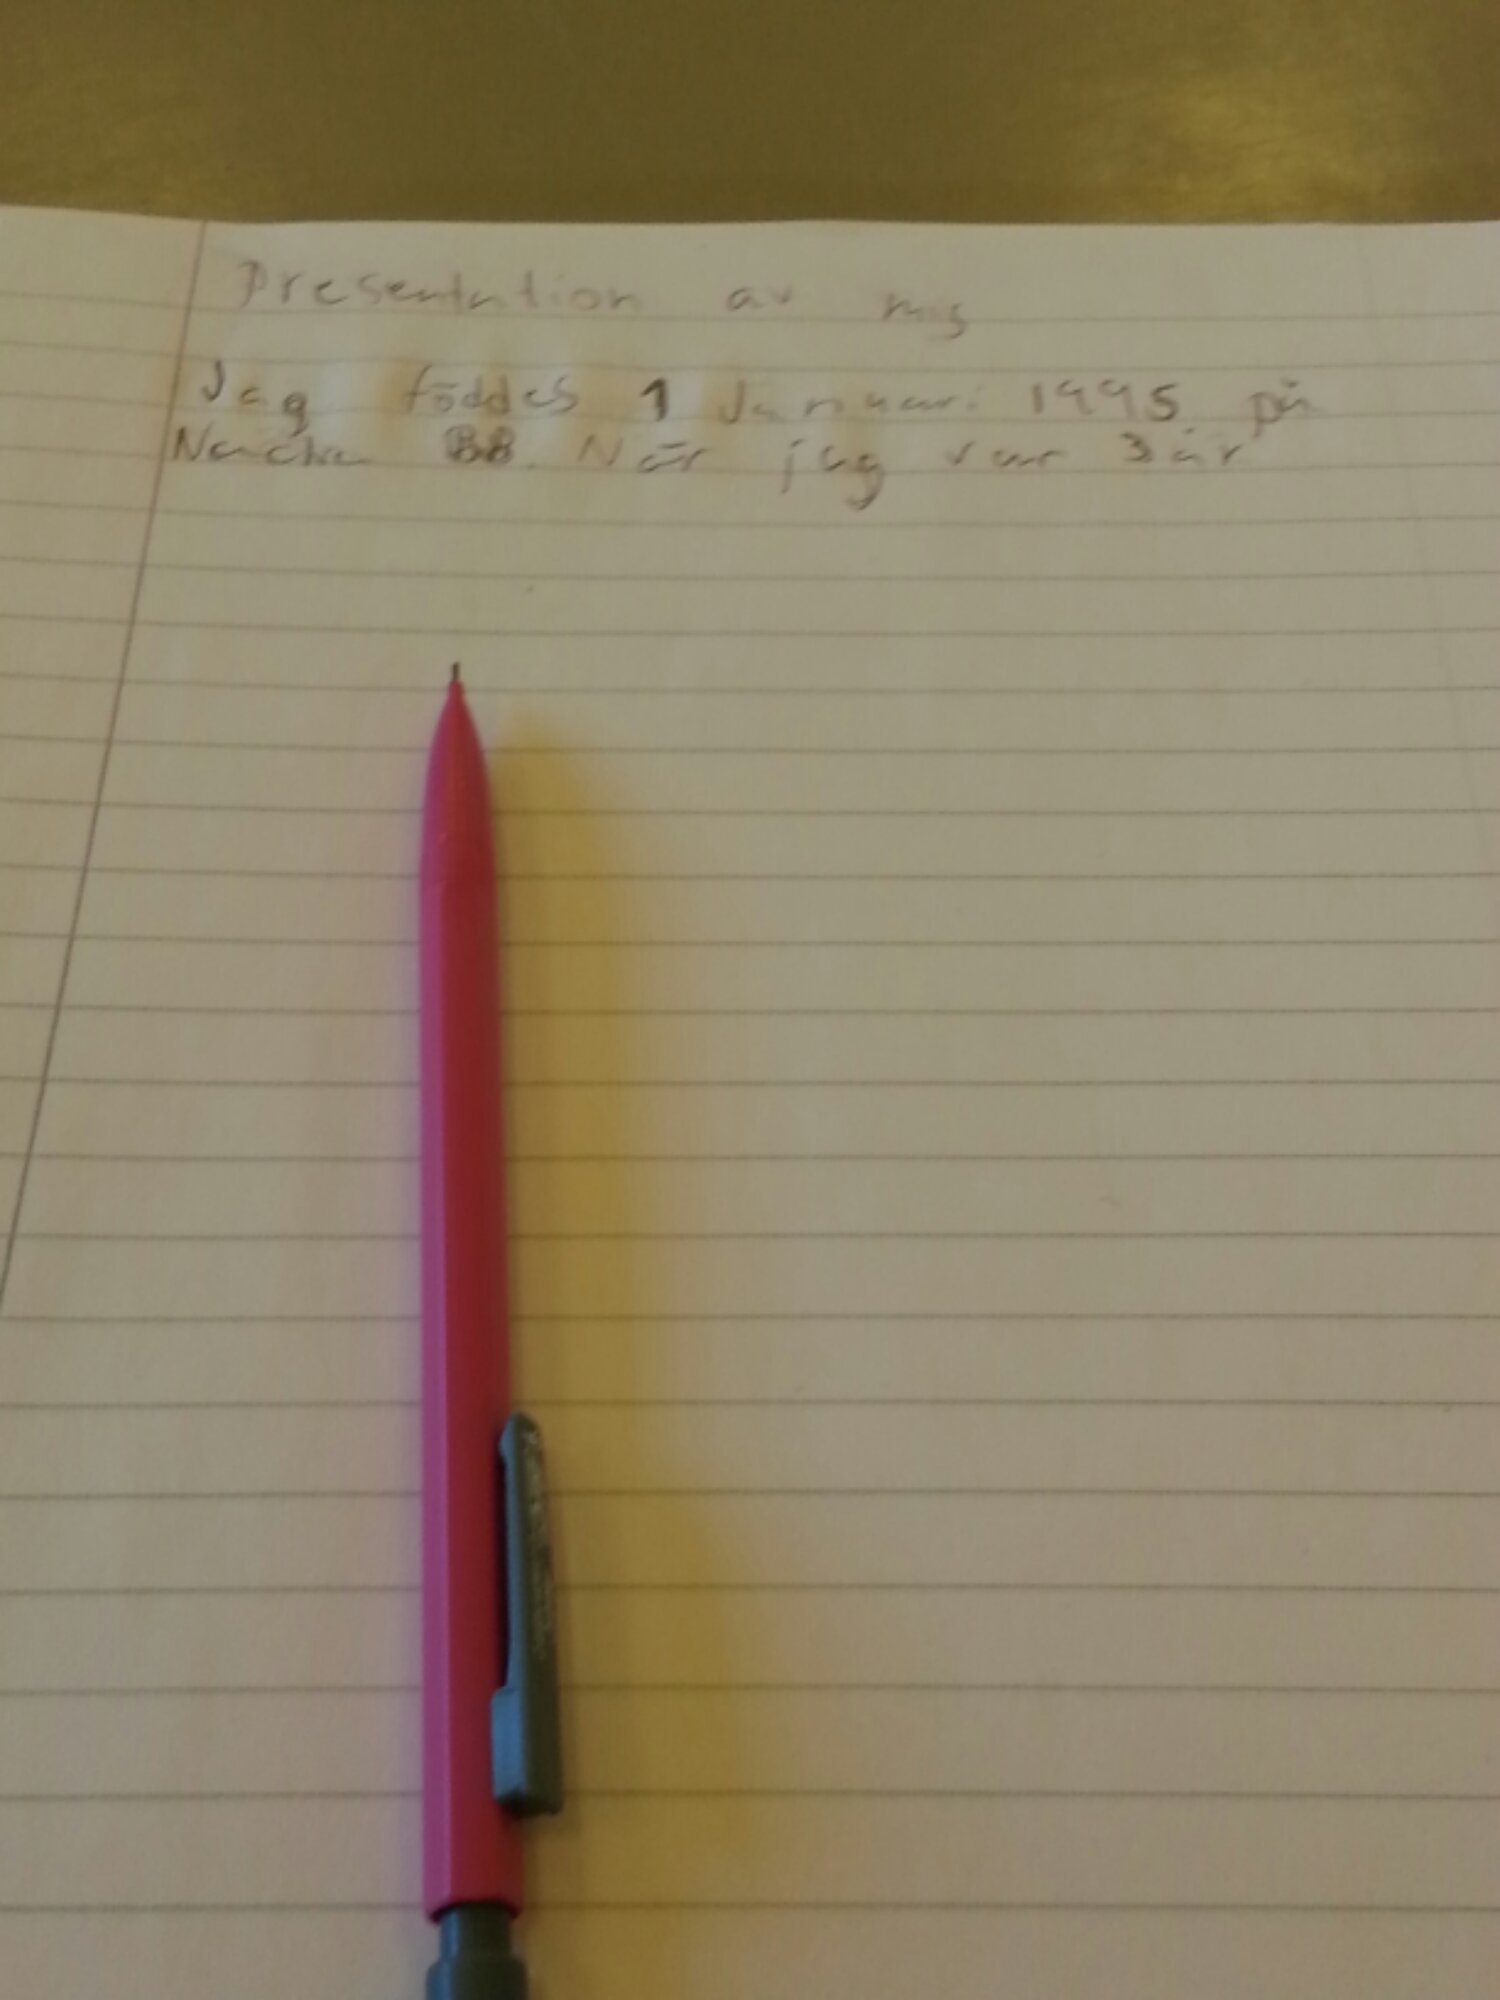 Presentation av mig
Jag föddes 1 Januari 1995 på
Nacka BB. När jag var 3 år